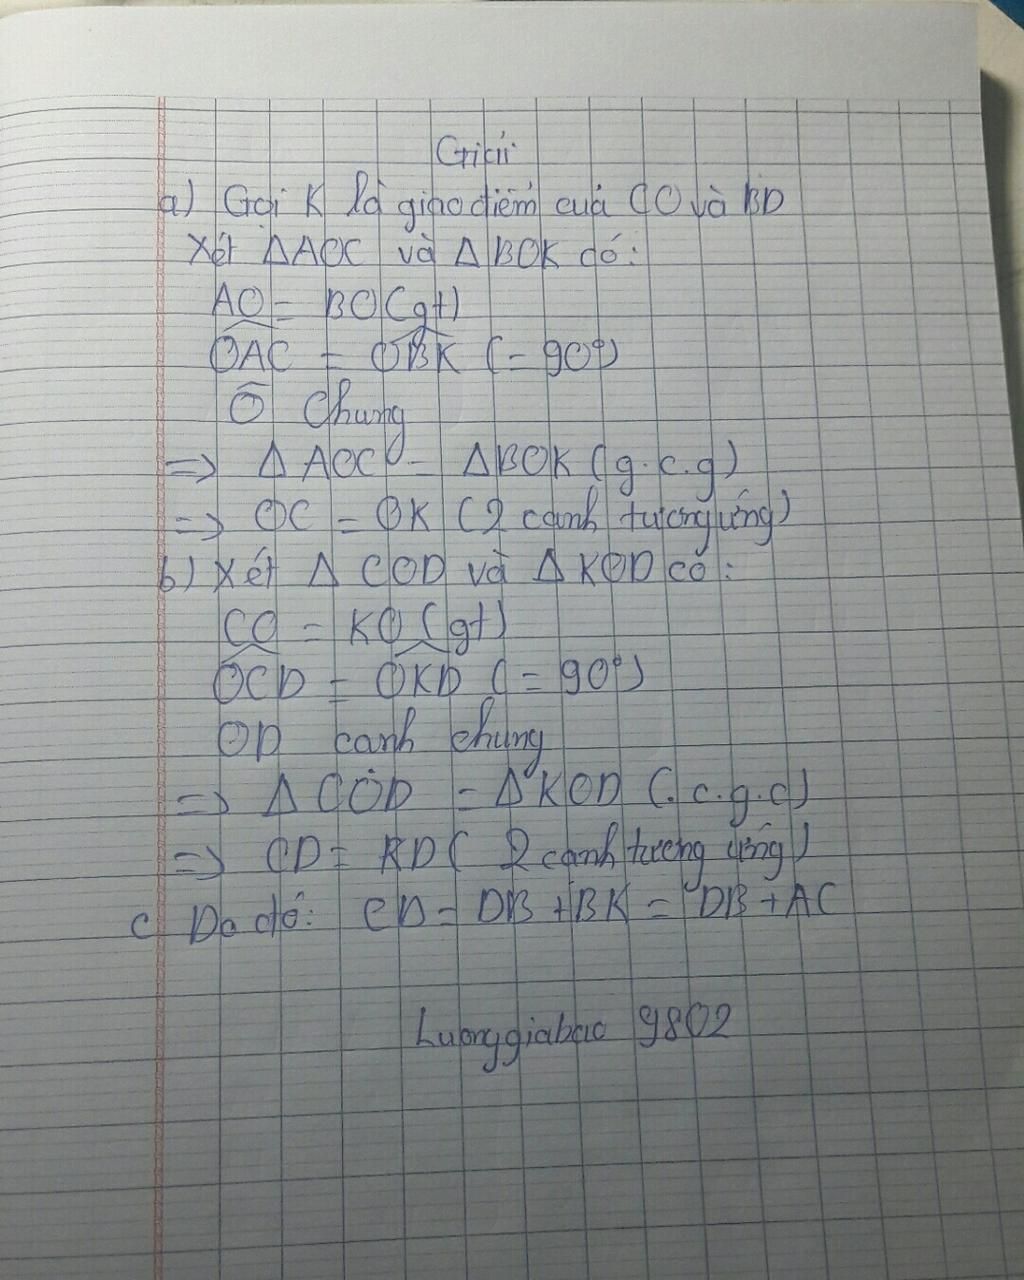 Giải
a) Gọi K là giao điểm của CO và BD
Xét ΔAOC và ΔBOK có:
AO = BO (gt)
OAC = OBK (= 90°)
Ô chung
=> ΔAOC = ΔBOK (g.c.g)
=> OC = OK (2 cạnh tương ứng)
b) Xét Δ COD và Δ KOD có:
CO = KO (gt)
OCD = OKD (= 90°)
OD cạnh chung
=> Δ COD = Δ KOD (c.g.c)
=> CD = KD ( 2 cạnh tương ứng)
c Do đó: CD = DB + BK = DB + AC
Luonggiabao 9802